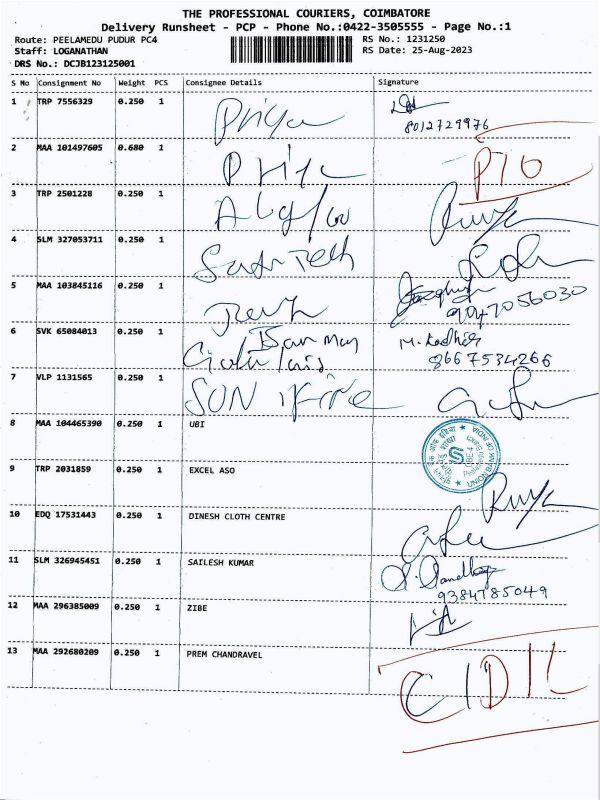 THE PROFESSIONAL COURIERS, COIMBATORE
Delivery Runsheet - PCP - Phone No.:0422-3505555 - Page No.:1
Route: PEELAMEDU PUDUR PC4 RS No.: 1231250
Staff: LOGANATHAN RS Date: 25-Aug-2023
DRS No.: DCJB123125001
S No Consignment No Weight PCS Consignee Details Signature
1 TRP 7556329 0.250 1 Priya
8012729976
2 MAA 101497605 0.680 1 Priya PTO
3 TRP 2501228 0.250 1
4 SLM 327053711 0.250 1
5 MAA 103845116 0.250 1
9047056030
6 SVK 65084013 0.250 1 M. Kadhir
8667534266
7 VLP 1131565 0.250 1 SUN
8 MAA 104465390 0.250 1 UBI
UNION BANK OF INDIA
9 TRP 2031859 0.250 1 EXCEL ASO
10 EDQ 17531443 0.250 1 DINESH CLOTH CENTRE
11 SLM 326945451 0.250 1 SAILESH KUMAR
9384785049
12 MAA 296385009 0.250 1 ZIBE
13 MAA 292680209 0.250 1 PREM CHANDRAVEL